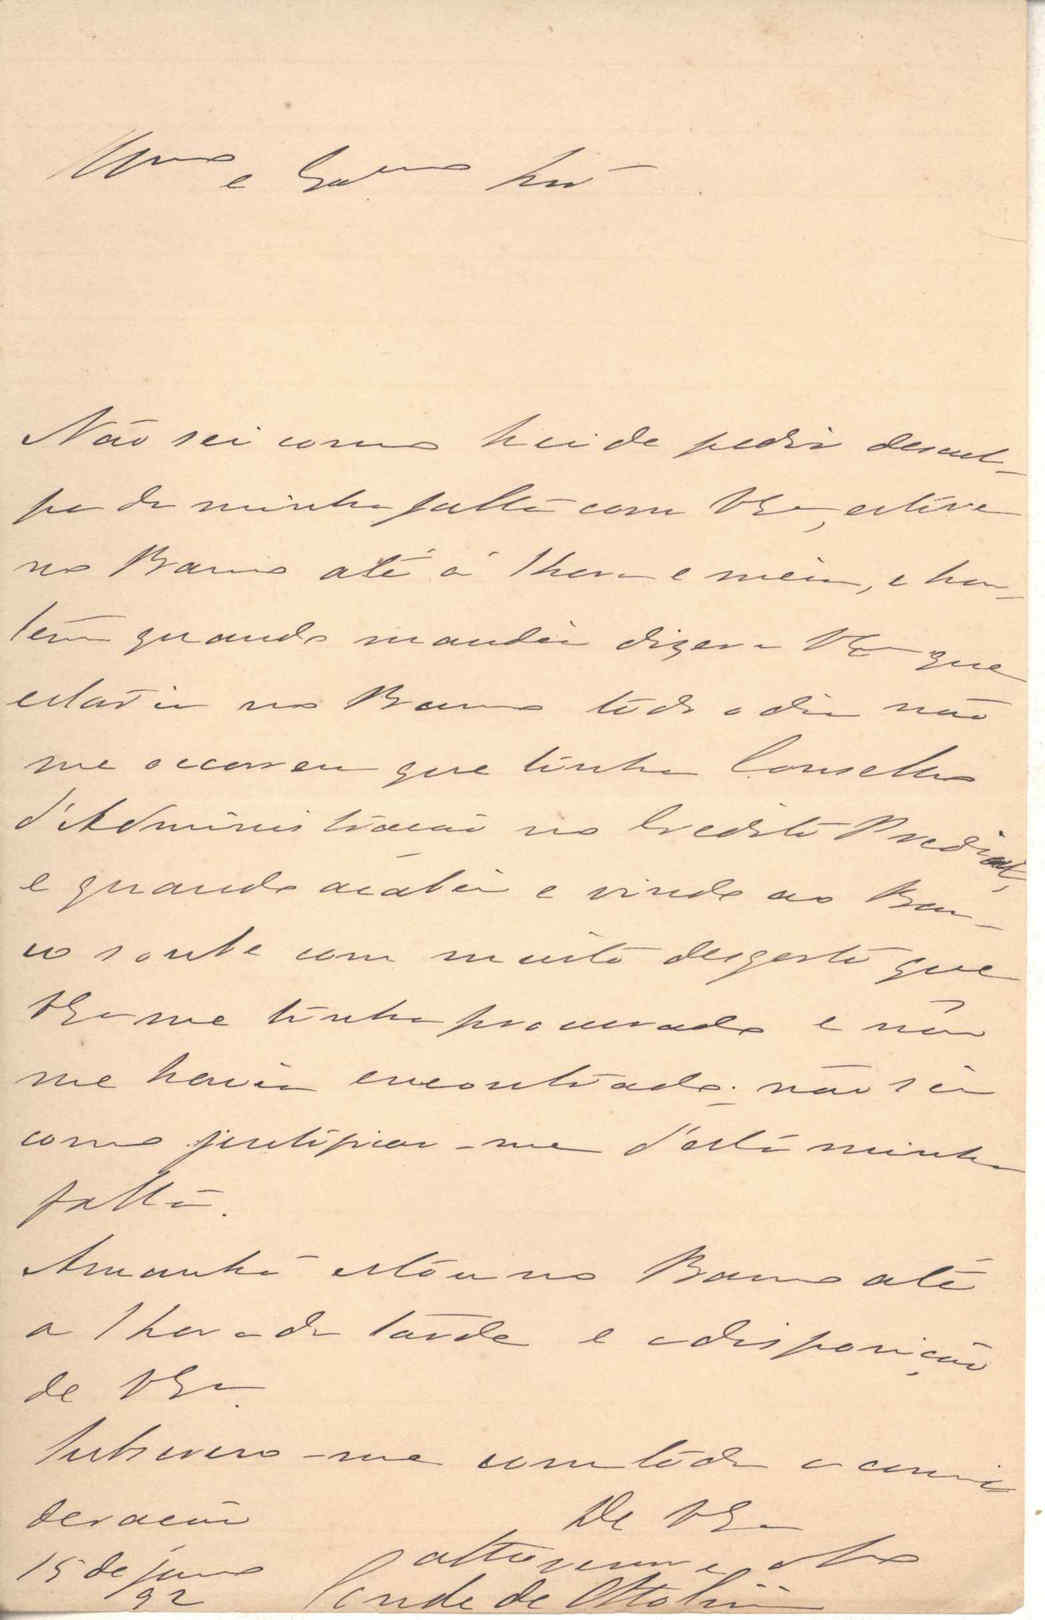 Illmo e Exmo Snr
Não sei como hei de pedir descul-
pa da minha falta com VEa, estive
no Banco até á 1 hora e meia, e hon-
tem quando mandei dizer a VEa que
estaria no Banco todo o dia não
me occorreu que tinha Conselho
d'Administracão no Credito Predial,
e quando acabei e vindo ao Ban-
co soube com muito desgosto que
VEa me tinha procurado e não
me havia encontrado; não sei
como justificar-me d'esta minha
falta.
Amanhã estou no Banco até
a 1 hora da tarde e a disposição
de VEa.
Subscrevo-me com toda a consi
deracão De VEa
15 de junho atto venor e obo
92 Conde de Ottolini